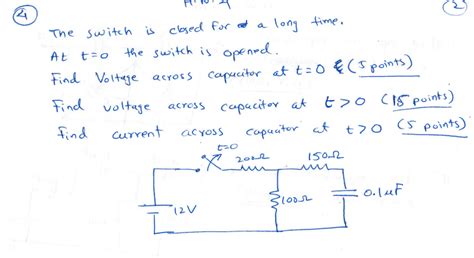 4
The switch is closed for a long time.
2
At t=0 the switch is opened.
Find Voltage across capacitor at t=0 (5 points)
Find voltage across capacitor at t>0 (15 points)
find current across capacitor at t>0 (5 points)
t=0
200Ω
150Ω
12V
100Ω
0.1uF